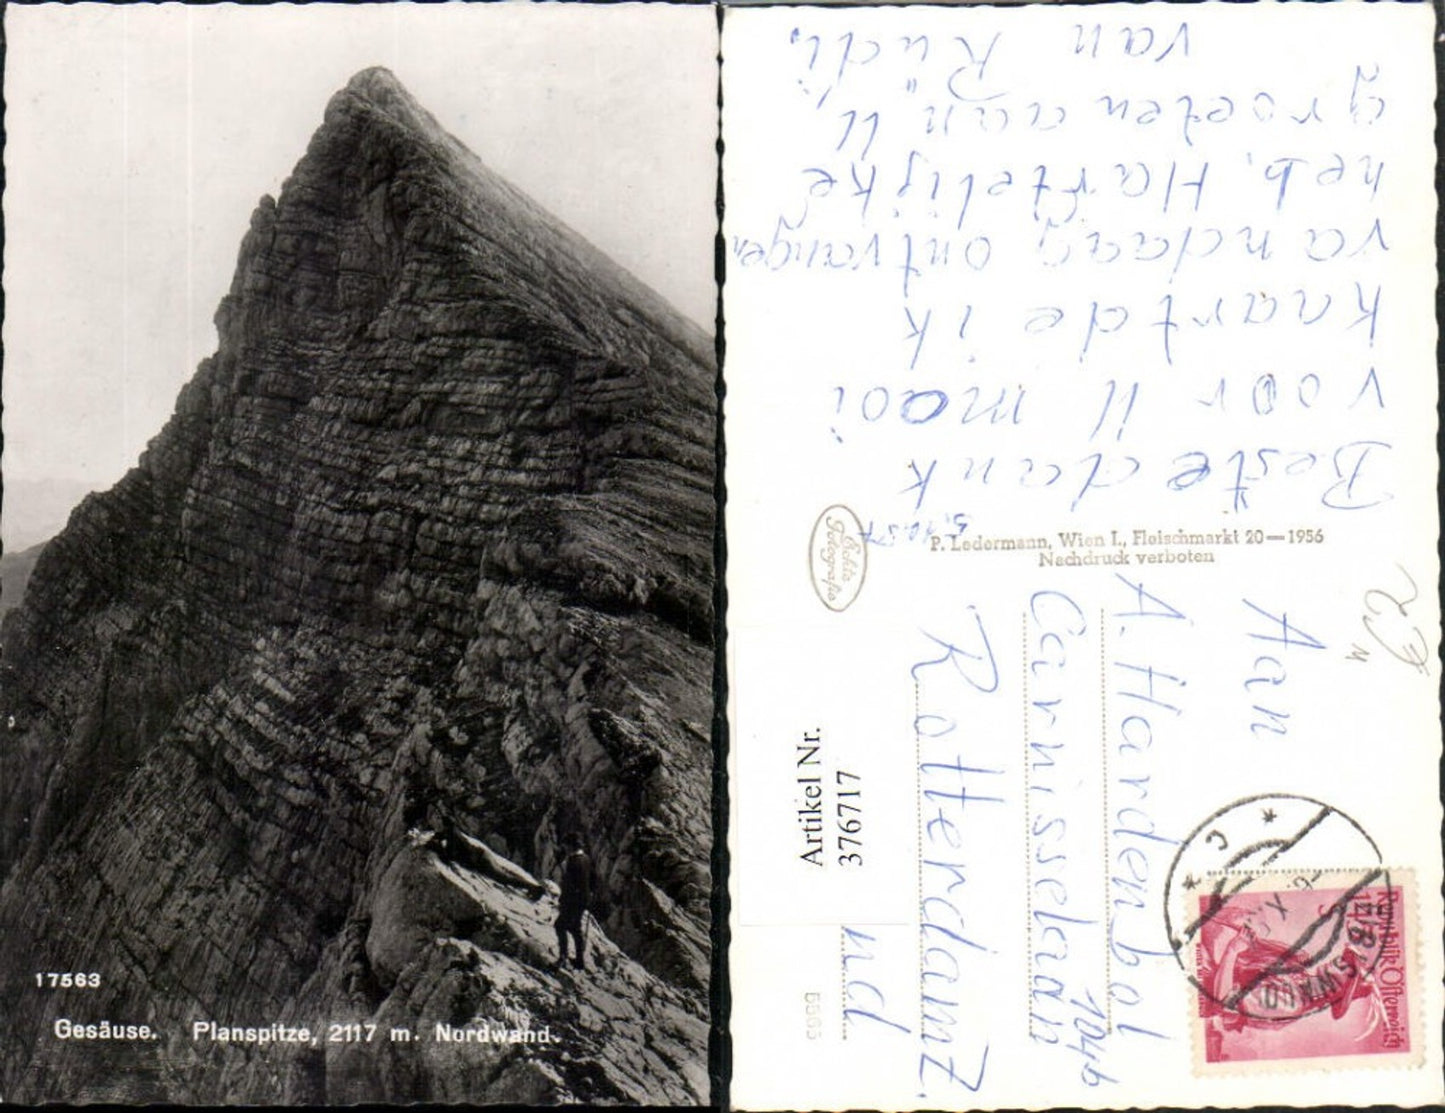 17563
Gesäuse. Planspitze, 2117 m. Nordwand.
Beste dank
voor U mooi
kaart de ik
vandaag ontvangen
heb. Hartelijke
groeten aan U
van Rudi.
P. Ledermann, Wien I., Fleischmarkt 20—1956
Nachdruck verboten
Echte
Fotografie
Aan
A. Hardenbol
Carnisselaan
104b
Rotterdam Z.
nd
Artikel Nr.
376717
5565
Republik Österreich